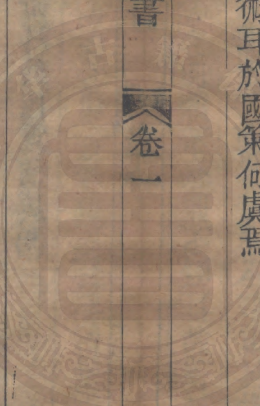 術耳於國策何虞焉
書
卷一